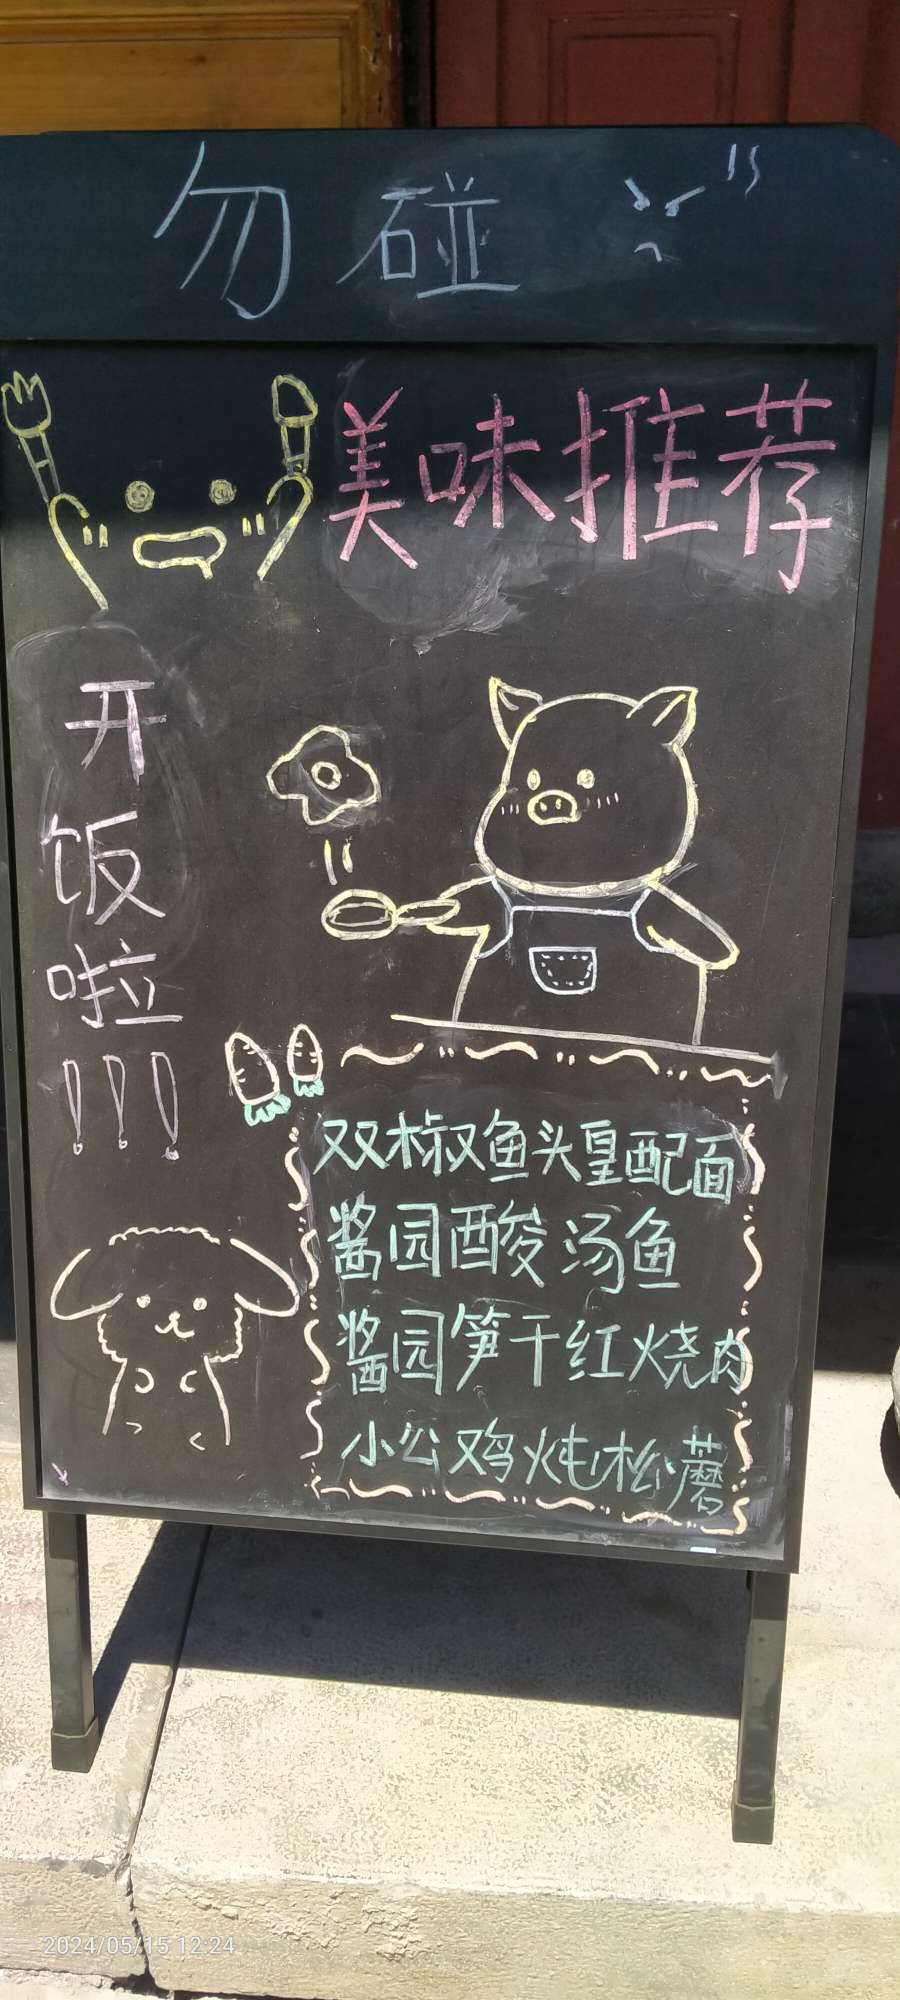 勿碰
美味推荐
开饭啦!!!
双椒鱼头皇配面
酱园酸汤鱼
酱园笋干红烧肉
小公鸡炖松蘑
2024/05/15 12:24